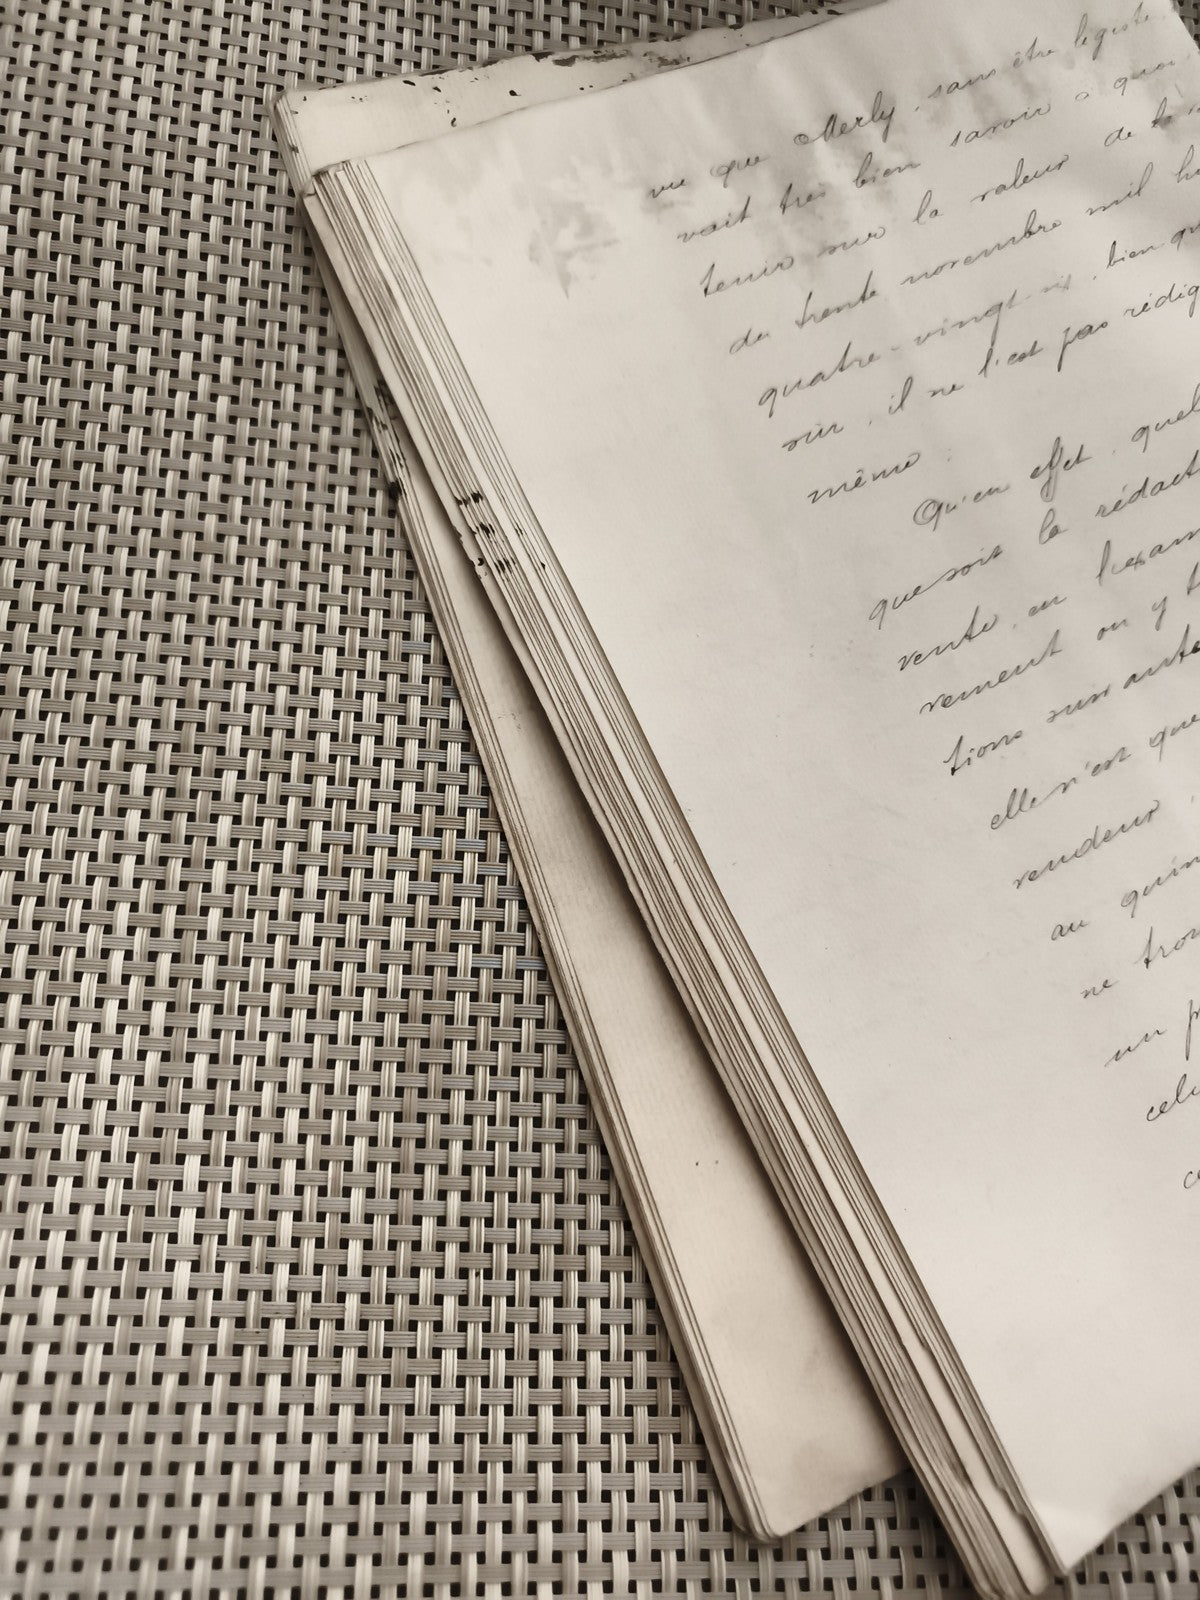 vu que Merly, sans être légiste,
vait très bien savoir à quoi
tenir sur la valeur de la
du trente novembre mil hu
quatre-vingt-six, bien qu
sur, il ne l'est pas rédig
même.
Qu'en effet, quel
que soit la rédact
vente, en l'exam
rement on y t
tions suivante
elle n'est que
vendeur
au quin
ne trou
un p
celu
c